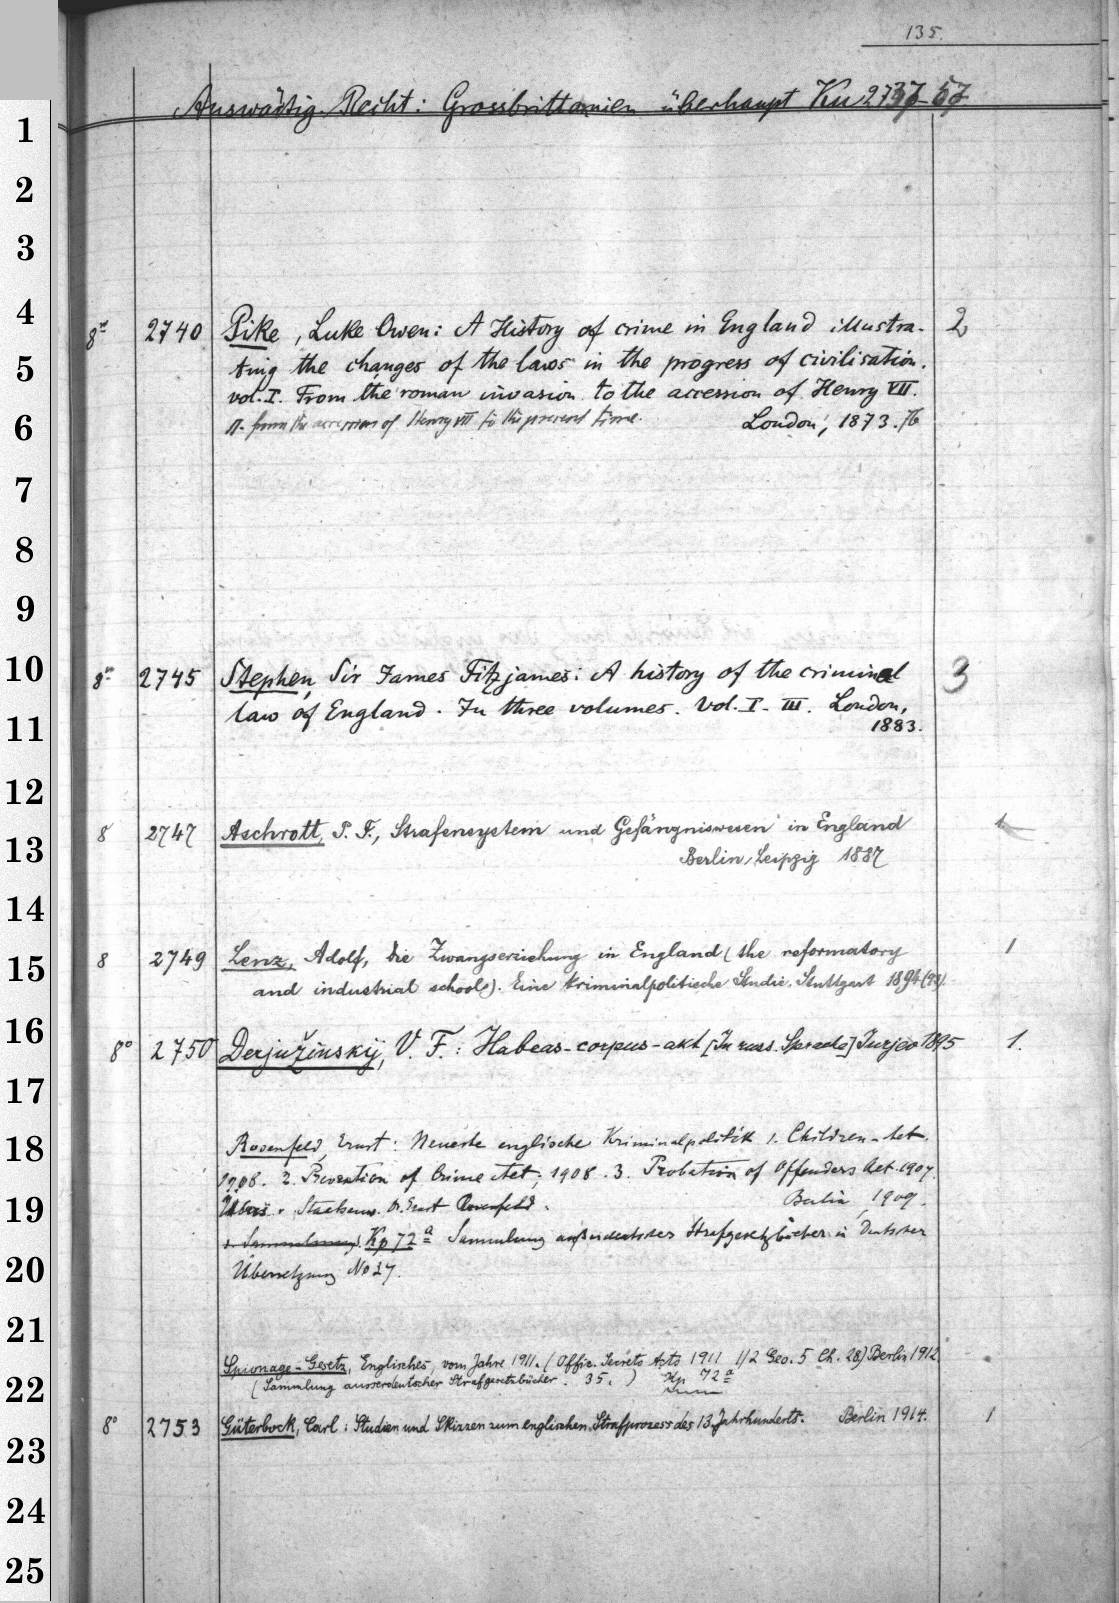 135.
Auswärtig. Recht: Grossbrittanien überhaupt Ku 2737-57
1
2
3
4
8° 2740 Pike, Luke Owen: A History of crime in England illustra- 2
5
ting the changes of the laws in the progress of civilisation.
vol. I. From the roman invasion to the accession of Henry VII.
6
II. from the accession of Henry VII to the present time. London, 1873. 76
7
8
9
10
8° 2745 Stephen, Sir James Fitzjames: A history of the criminal 3
law of England. In three volumes. Vol. I-III. London,
11
1883.
12
8 2747 Aschrott, P. F., Strafensystem und Gefängniswesen in England 1
13
Berlin, Leipzig 1887
14
8 2749 Lenz, Adolf, die Zwangserziehung in England (the reformatory 1
15
and industrial schools). Eine kriminalpolitische Studie. Stuttgart 1894 (93).
16
8° 2750 Derjužinskij, V. F.: Habeas-corpus-akt [In russ. Sprache] Jurjev 1895 1.
17
18
Rosenfeld, Ernst: Neueste englische Kriminalpolitik 1. Children-Act.
1908. 2. Prevention of Crime Act, 1908. 3. Probation of Offenders Act. 1907.
19
Übers. v. Staatsanw. Dr. Ernst Rosenfeld. Berlin, 1909.
s. Sammlung Kp 72a Sammlung außerdeutscher Strafgesetzbücher in Deutscher
20
Übersetzung No 27.
21
Spionage-Gesetz, Englisches, vom Jahre 1911. (Offic. Secrets Acts 1911 1/2 Geo. 5 Ch. 28) Berlin 1912
22
(Sammlung ausserdeutscher Strafgesetzbücher. 35.) Kp 72a
8° 2753 Güterbock, Carl: Studien und Skizzen zum englischen Strafprozess des 13. Jahrhunderts. Berlin 1914. 1
23
24
25